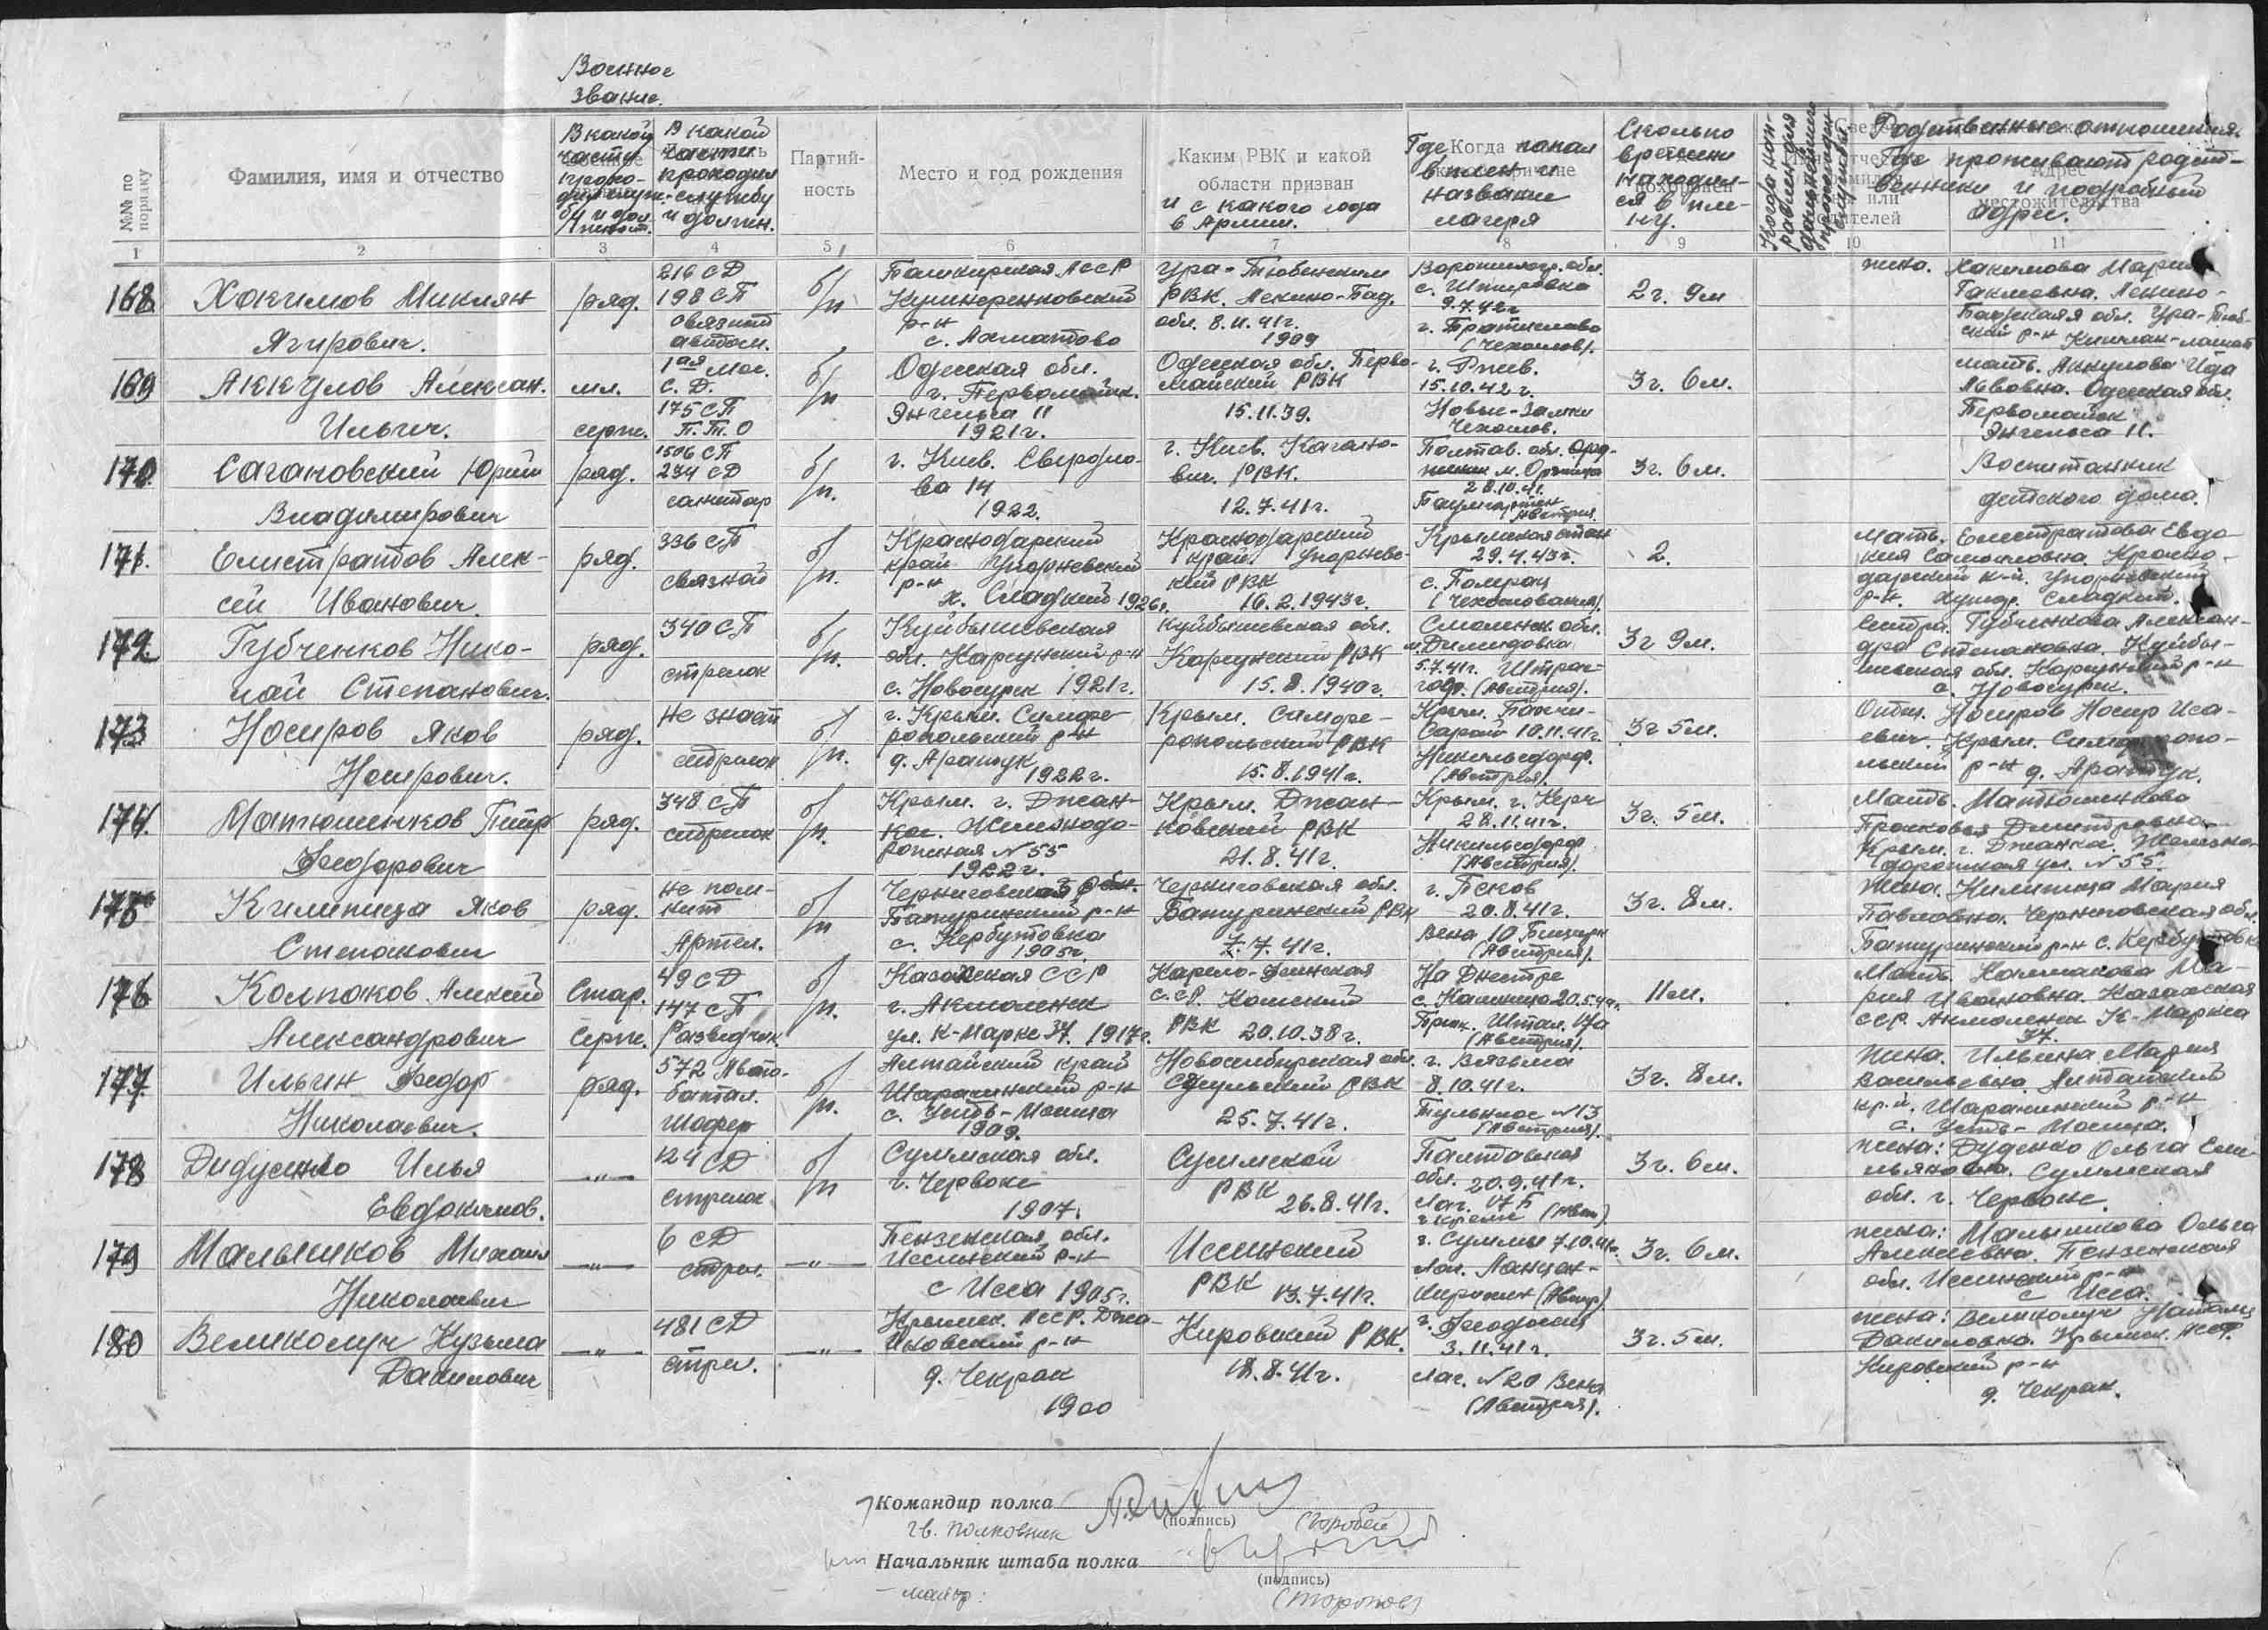 Военное
звание.
№№ по порядку
Фамилия, имя и отчество
В какой
части
прохо-
В какой
части
проходил
службу
и должн.
Партий-
ность
Место и год рождения
Каким РВК и какой
области призван
и с какого года
в Армии.
Где Когда попал
в плен и
название
лагеря
Сколько
времени
находил-
ся в пле-
ну.
Родственные отношения.
Где проживают родст-
венники и подробный
адрес.
1 2 3 4 5 6 7 8 9 10 11
168 Хакимов Миклян
Ягирович.
ряд.
216 СД
198 СП
связист
автом.
б/п
Башкирская АССР
Кушнаренковский
р-н
с. Ахматово
1909
Ура-Тюбенским
РВК. Ленино-Бад.
обл. 8.11.41г.
Ворошиловгр. обл.
9.7.42г
г. Братислава
(Чехослов).
2г. 9м
жена. Хакимова Мария
Ленино-
Бадская обл. Ура-Тюб-
ский р-н
169 Аккулов Алексан.
Ильич.
мл.
серж.
1ая мос.
С.Д.
175 СП
П.Т.О
б/п
Одесская обл.
г. Первомайск.
Энгельса 11
1921г.
Одесская обл. Перво-
майский РВК
15.11.39.
г. Ржев.
15.10.42г.
Новые-Замки
Чехослов.
3г. 6м.
мать. Аккулова Ида
Львовна. Одесская обл.
Первомайск
Энгельса 11.
170. Сагановский Юрий
Владимирович
ряд.
1506 СП
234 СД
санитар
б/п.
г. Киев. Свердло-
ва 14
1922.
г. Киев. Кагано-
вич. РВК.
12.7.41г.
Полтав. обл.
м. Оржица
28.10.41.
Баумгартен
Австрия.
3г. 6м.
Воспитанник
детского дома.
171. Елистратов Алек-
сей Иванович.
ряд.
336 СП
связной
б/п.
Краснодарский
край Упорневский
р-н
х. Сладкий 1926г.
Краснодарский
край. Упорнев-
кий РВК
16.2.1943г.
Крымская стан
29.4.43г.
(Чехословакия).
2.
Мать. Елистратова Евдо-
кия Самойловна. Красно-
дарский к-й. Упорневский
р-н. хутор. Сладкий.
172 Губченков Нико-
лай Степанович.
ряд.
340 СП
стрелок
б/п.
Куйбышевская
обл. Карсунский р-н
с. Новосурск 1921г.
Куйбышевская обл.
Карсунский РВК
15.8.1940г.
Смоленск. обл.
м. Демидовка
5.7.41г.
(Австрия).
3г 9м.
Сестра. Губченкова Алексан-
дра Степановна. Куйбы-
шевская обл. Карсунский р-н
с. Новосурск.
173 Носиров Яков
Носирович.
ряд.
не знает
стрелок
б/п.
г. Крым. Симфе-
ропольский р-н
д. Аратук
1922г.
Крым. Симфе-
ропольский РВК
15.8.1941г.
Крым. Бахчи-
Сарай 10.11.41г.
Никильсдорф.
(Австрия).
3г 5м.
Отец. Носиров Носир Иса-
евич. Крым. Симферопо-
льский р-н д. Аратук.
174. Матюшенков Петр
Федорович
ряд.
348 СП
стрелок
б/п.
Крым. г. Джан-
кой. Железнодо-
рожная N 55
1922г.
Крым. Джан-
ковский РВК
21.8.41г.
Крым. г. Керч
28.11.41г.
Никильсдорф
(Австрия).
3г. 5м.
Мать. Матюшенкова
Прасковья Дмитровна
Крым. г. Джанкой. Железно-
дорожная ул. N 55.
175 Килипица Яков
Степанович
ряд.
не пом-
нит
Артил.
б/п
Черниговская обл.
Батуринский р-н
с. Кербутовка
1905г.
Черниговская обл.
Батуринский РВК
7.7.41г.
г. Псков
20.8.41г.
Вена 10
(Австрия).
3г. 8м.
Жена. Килипица Мария
Павловна. Черниговская обл.
Батуринский р-н с. Кербутовка
176 Колпаков Алексей
Александрович
Стар.
серж.
49 СД
147 СП
Разведчик
б/п.
Казахская ССР
г. Акмоленск
ул. К-Маркс 37. 1917г.
Карело-Финская
С.С.Р.
РВК 20.10.38г.
На Днестре
20.5.44г.
Штал. 17а
(Австрия).
11м.
Мать. Колпакова Ма-
рия Ивановна. Казахская
ССР. Акмоленск К-Маркса
37.
177. Ильин Федор
Николаевич.
ряд.
572 Авто-
батал.
Шофер
б/п.
Алтайский край
р-н
с. Усть-Мосиха
1909.
Новосибирская обл.
РВК
25.7.41г.
г. Вязьма
8.10.41г.
N 13
(Австрия).
3г. 8м.
жена. Ильина Мария
Васильевна. Алтайский
кр.й. р-н
с. Усть-Мосиха.
178 Дидусенко Илья
Евдокимов.
—"—
124 СД
стрелок
б/п
Суммская обл.
г. Червоне
1907.
Суммской
РВК 26.8.41г.
Палтавская
обл. 20.9.41г.
Лаг. 17Б
г. Кремс (Авст)
3г. 6м.
жена: Дуденко Ольга Еме-
льяновна. Суммская
обл. г. Червоне.
179 Малышков Михаил
Николаевич
—"—
6 СД
стрел.
—"—
Пензенская обл.
Иссинский р-н
с Исса 1905г.
Иссинский
РВК 13.7.41г.
г. Суммы 7.10.41г.
Лаг. Ланцен-
кирхен (Австр)
3г. 6м.
жена: Малышкова Ольга
Алексеевна. Пензенская
обл. Иссинский р-н
с Исса.
180 Великолуч Кузьма
Данилович
—"—
481 СД
стрел.
—"—
Крымск. АССР.
р-н
д. Чекрак
1900
Кировский РВК.
18.8.41г.
г. Феодосия
3.11.41г.
Лаг. N 20 Вена
(Австрия).
3г. 5м.
жена: Великолуч Наталия
Даниловна. Крымск. АССР.
Кировский р-н
д. Чекрак.
Командир полка
(подпись)
гв. полковник
Начальник штаба полка
(подпись)
майор:
(Торопов)